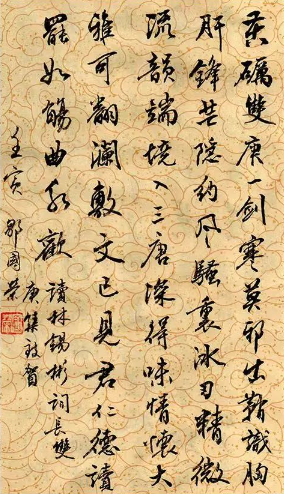 苦礪雙庚一劍寒莫邪出鞘識胸
肝鋒芒隱約風騷裏冰刃精微
流韻端境入三唐深得味情懷大
雅可翻瀾敷文已見君仁德讀
罷如觴曲水歡
讀林錫彬詞長雙
庚集致賀
壬寅 鄒國榮